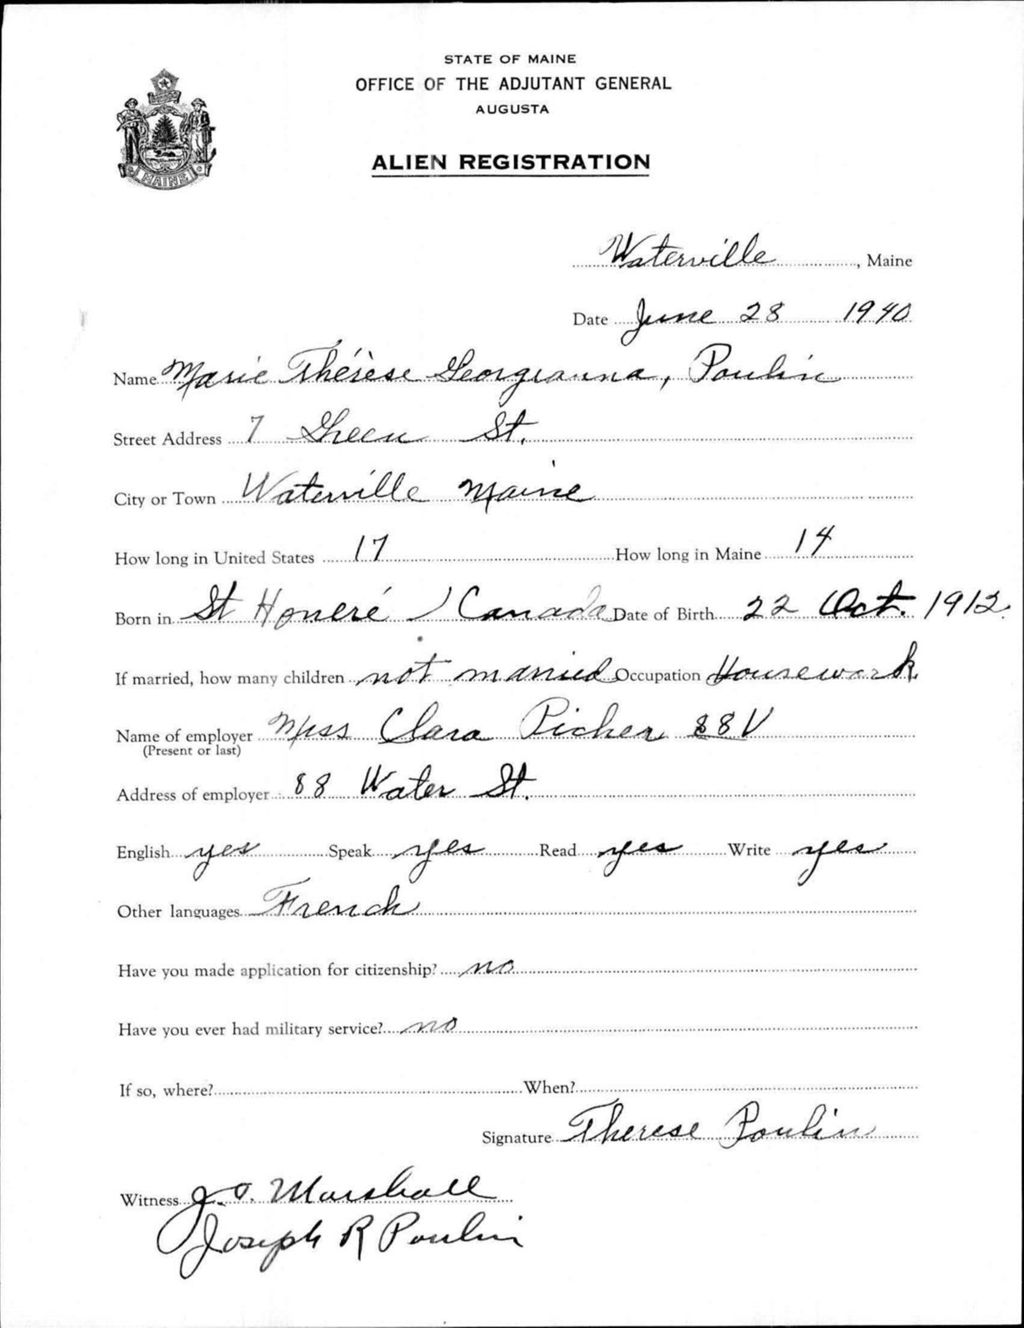 STATE OF MAINE
OFFICE OF THE ADJUTANT GENERAL
AUGUSTA
ALIEN REGISTRATION
MAINE
Waterville, Maine
Date June 28 1940
Name Marie Thérèse Georgianna, Poulin
Street Address 7 Green St.
City or Town Waterville Maine
How long in United States 17 How long in Maine 14
Born in St Honeré / Canada Date of Birth 22 Oct. 1912.
If married, how many children not married Occupation Housework
Name of employer Miss Clara Picher 88 V
(Present or last)
Address of employer 88 Water St.
English yes Speak yes Read yes Write yes
Other languages French
Have you made application for citizenship? no
Have you ever had military service? no
If so, where? When?
Signature Therese Poulin
Witness J. O. Marshall
Joseph R Poulin